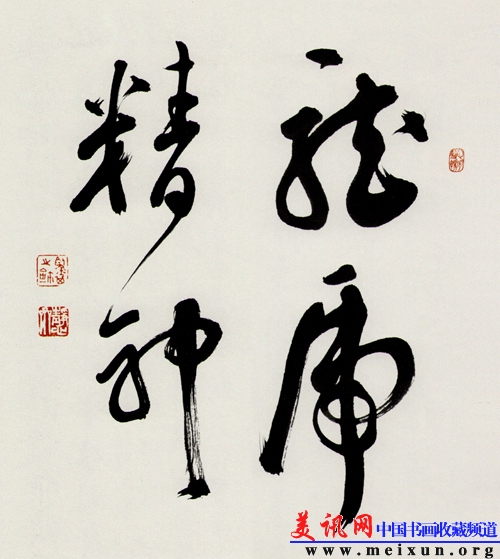 龍虎
精神
美讯网 中国书画收藏频道
www.meixun.org